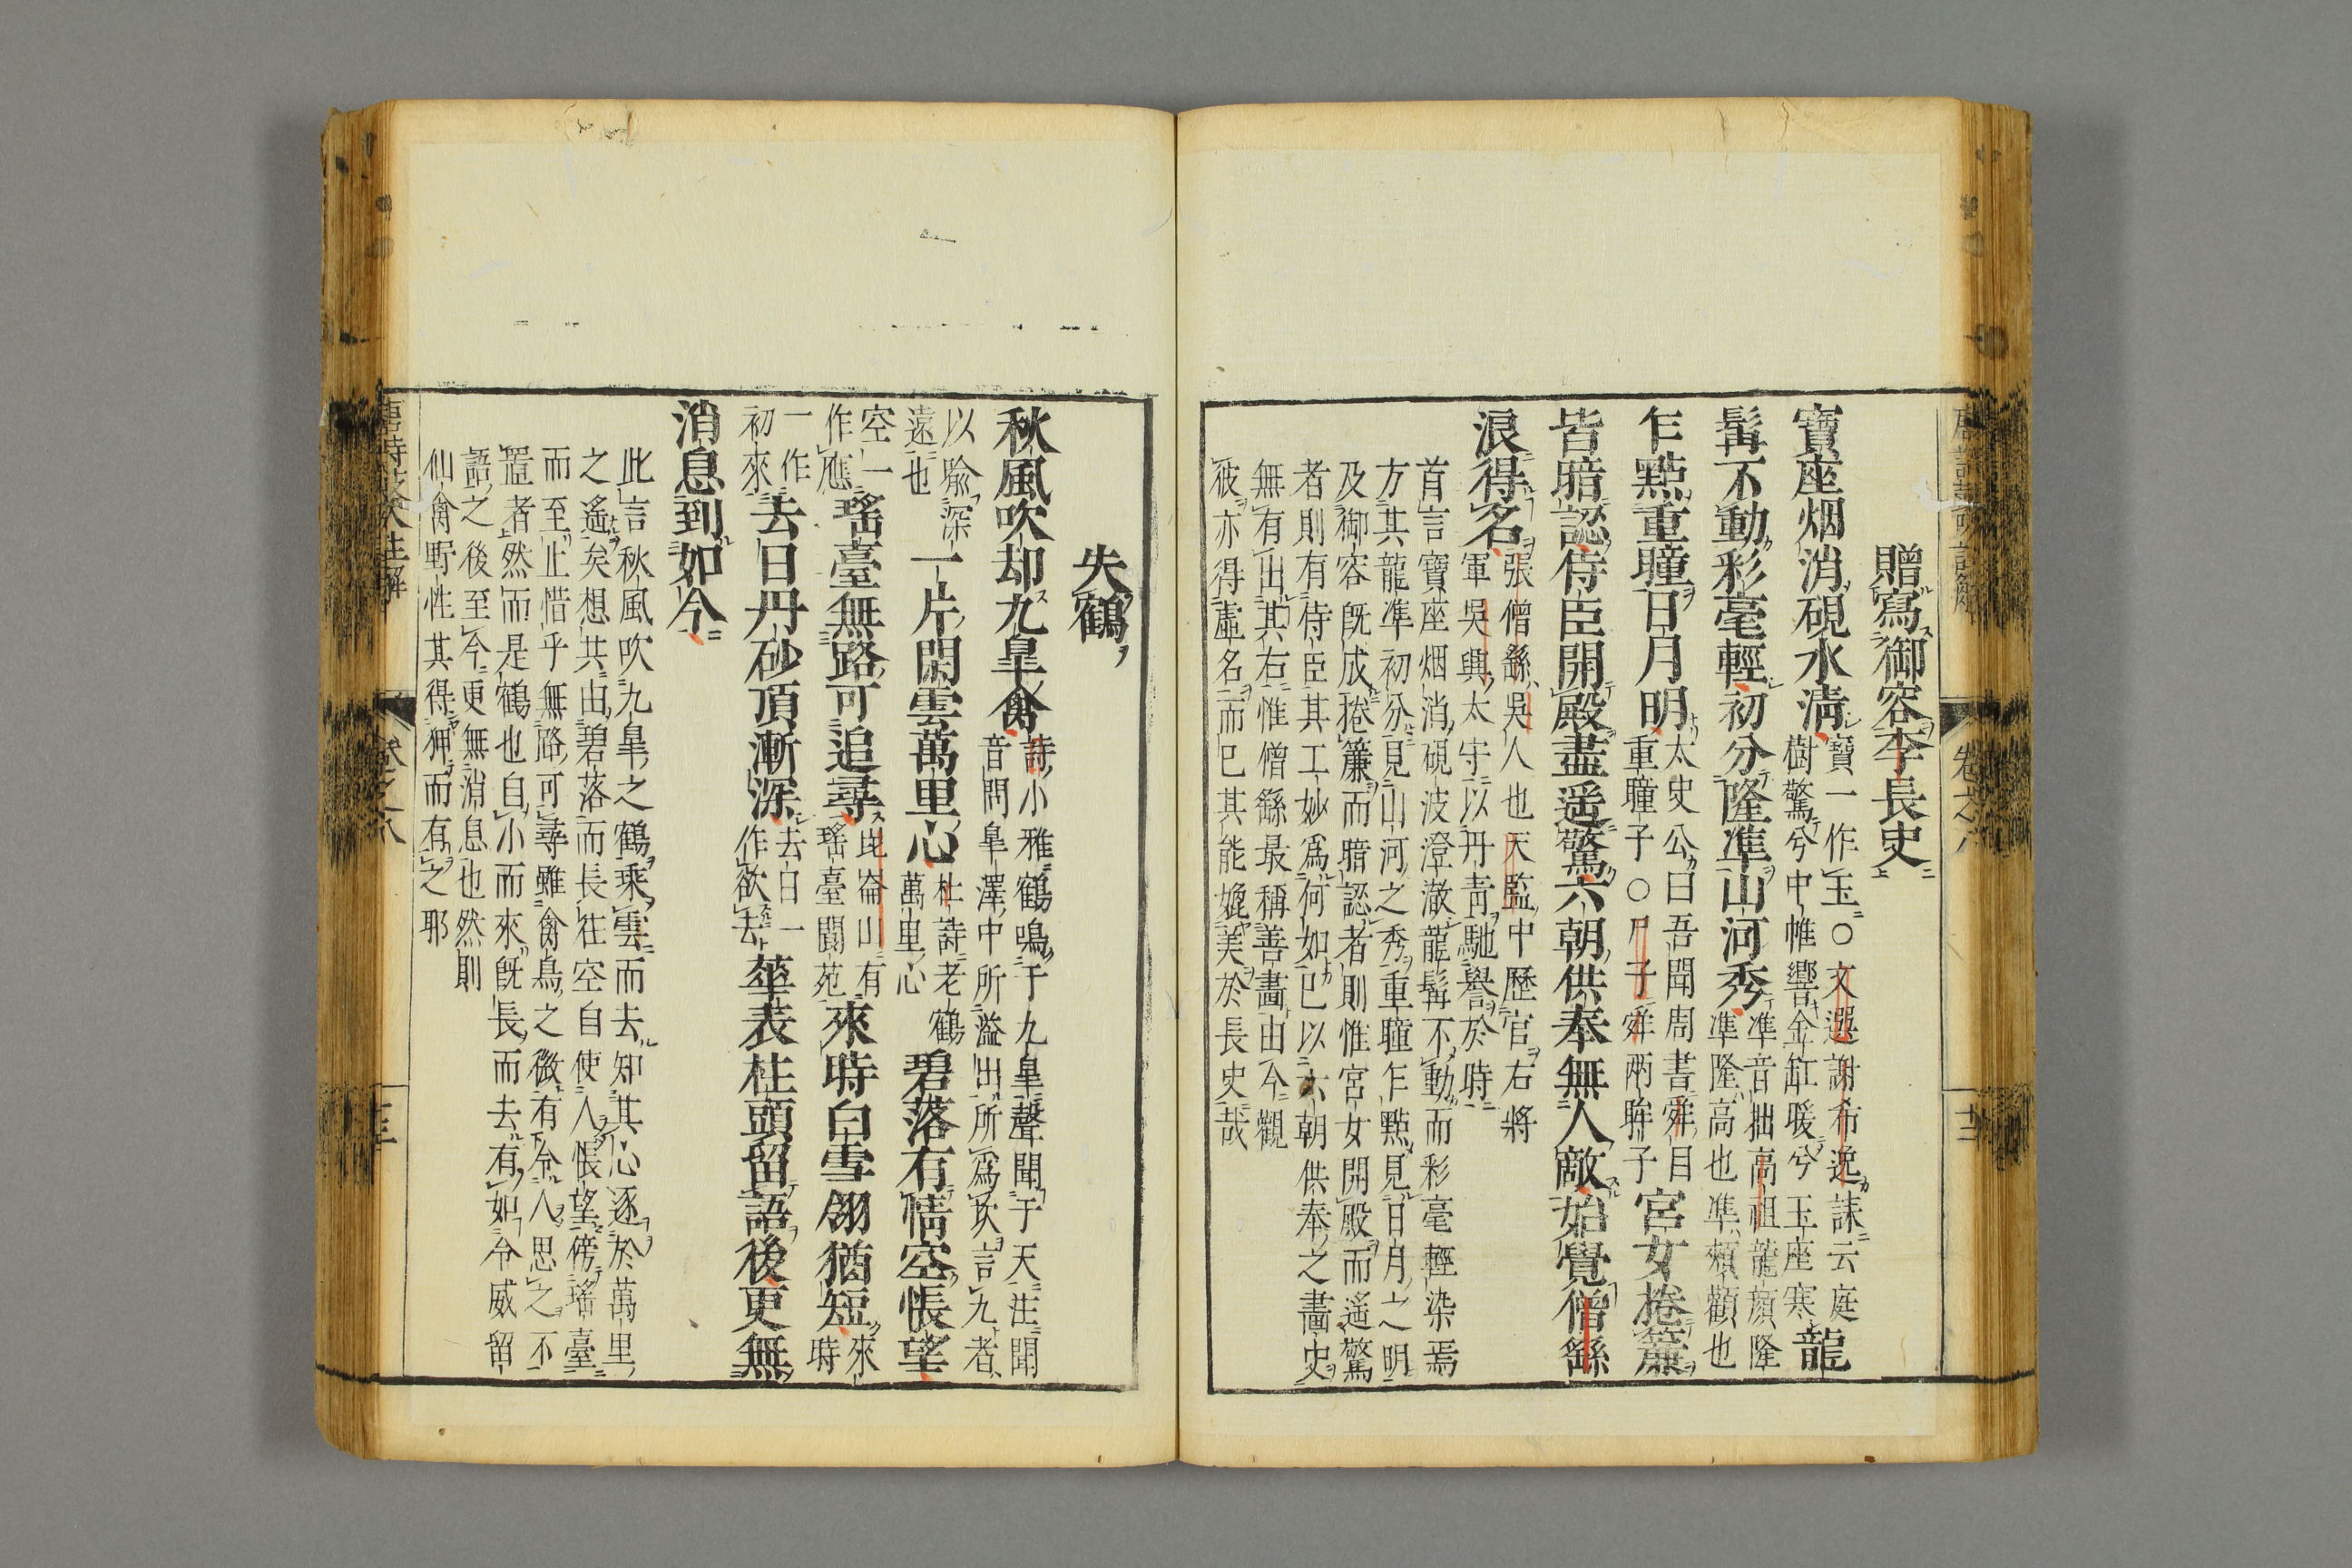 贈寫御容李長史
寶座烟消硯水淸寶一作玉○文選謝希逸誄云庭樹驚兮中帷響金缸暖兮玉座寒龍
髯不動彩毫輕初分隆準山河秀準音拙高祖龍顏隆準隆高也準頰顴也
乍點重瞳日月明太史公曰吾聞周書舜目重瞳子○尸子舜兩眸子宮女捲簾
皆暗認侍臣開殿盡遥驚六朝供奉無人敵始覺僧繇
浪得名張僧繇吳人也天監中歷官右將軍吳興太守以丹靑馳譽於時
首言寶座烟消硯波澄澈龍髯不動而彩毫輕染焉
方其龍準初分見山河之秀重瞳乍點見日月之明
及御容旣成捲簾而暗認者則惟宮女開殿而遥驚
者則有侍臣其工妙爲何如巳以六朝供奉之畵史
無有出其右惟僧繇最稱善畵由今觀
彼亦得虛名而巳其能媲美於長史哉
失鶴
秋風吹却九皐禽詩小雅鶴鳴于九皐聲聞于天注聞音問皐澤中所溢出所爲坎言九者
以喩深遠也一片閑雲萬里心杜詩老鶴萬里心碧落有情空悵望
空一作應瑤臺無路可追尋崑崙山有瑤臺閬苑來時白雪翎猶短來時
一作初來去日丹砂頂漸深去日一作欲去華表柱頭留語後更無
消息到如今
此言秋風吹九皐之鶴乘雲而去知其心逐於萬里
之遙矣想其由碧落而長往空自使人悵望傍瑤臺
而至止惜乎無路可尋雖禽鳥之微有令人思之不
置者然而是鶴也自小而來旣長而去有如令威留
語之後至今更無消息也然則
仙禽野性其得狎而有之耶
卷之八